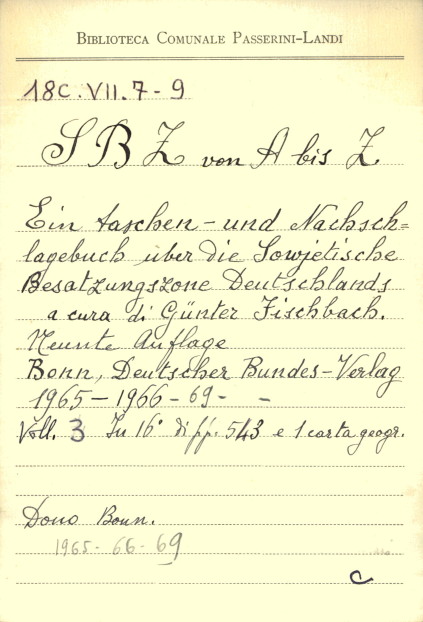 BIBLIOTECA COMUNALE PASSERINI-LANDI
18C.VII.7-9
SBZ von A bis Z
Ein taschen- und Nachsch=
lagebuch über die Sowjetische
Besatzungszone Deutschlands
a cura di Günter Fischbach.
Neunte Auflage
Bonn, Deutscher Bundes-Verlag
1965-1966-69- -
Voll. 3 In 16° di pp. 543 e 1 carta geogr.
Dono Bonn.
1965-66-69
C